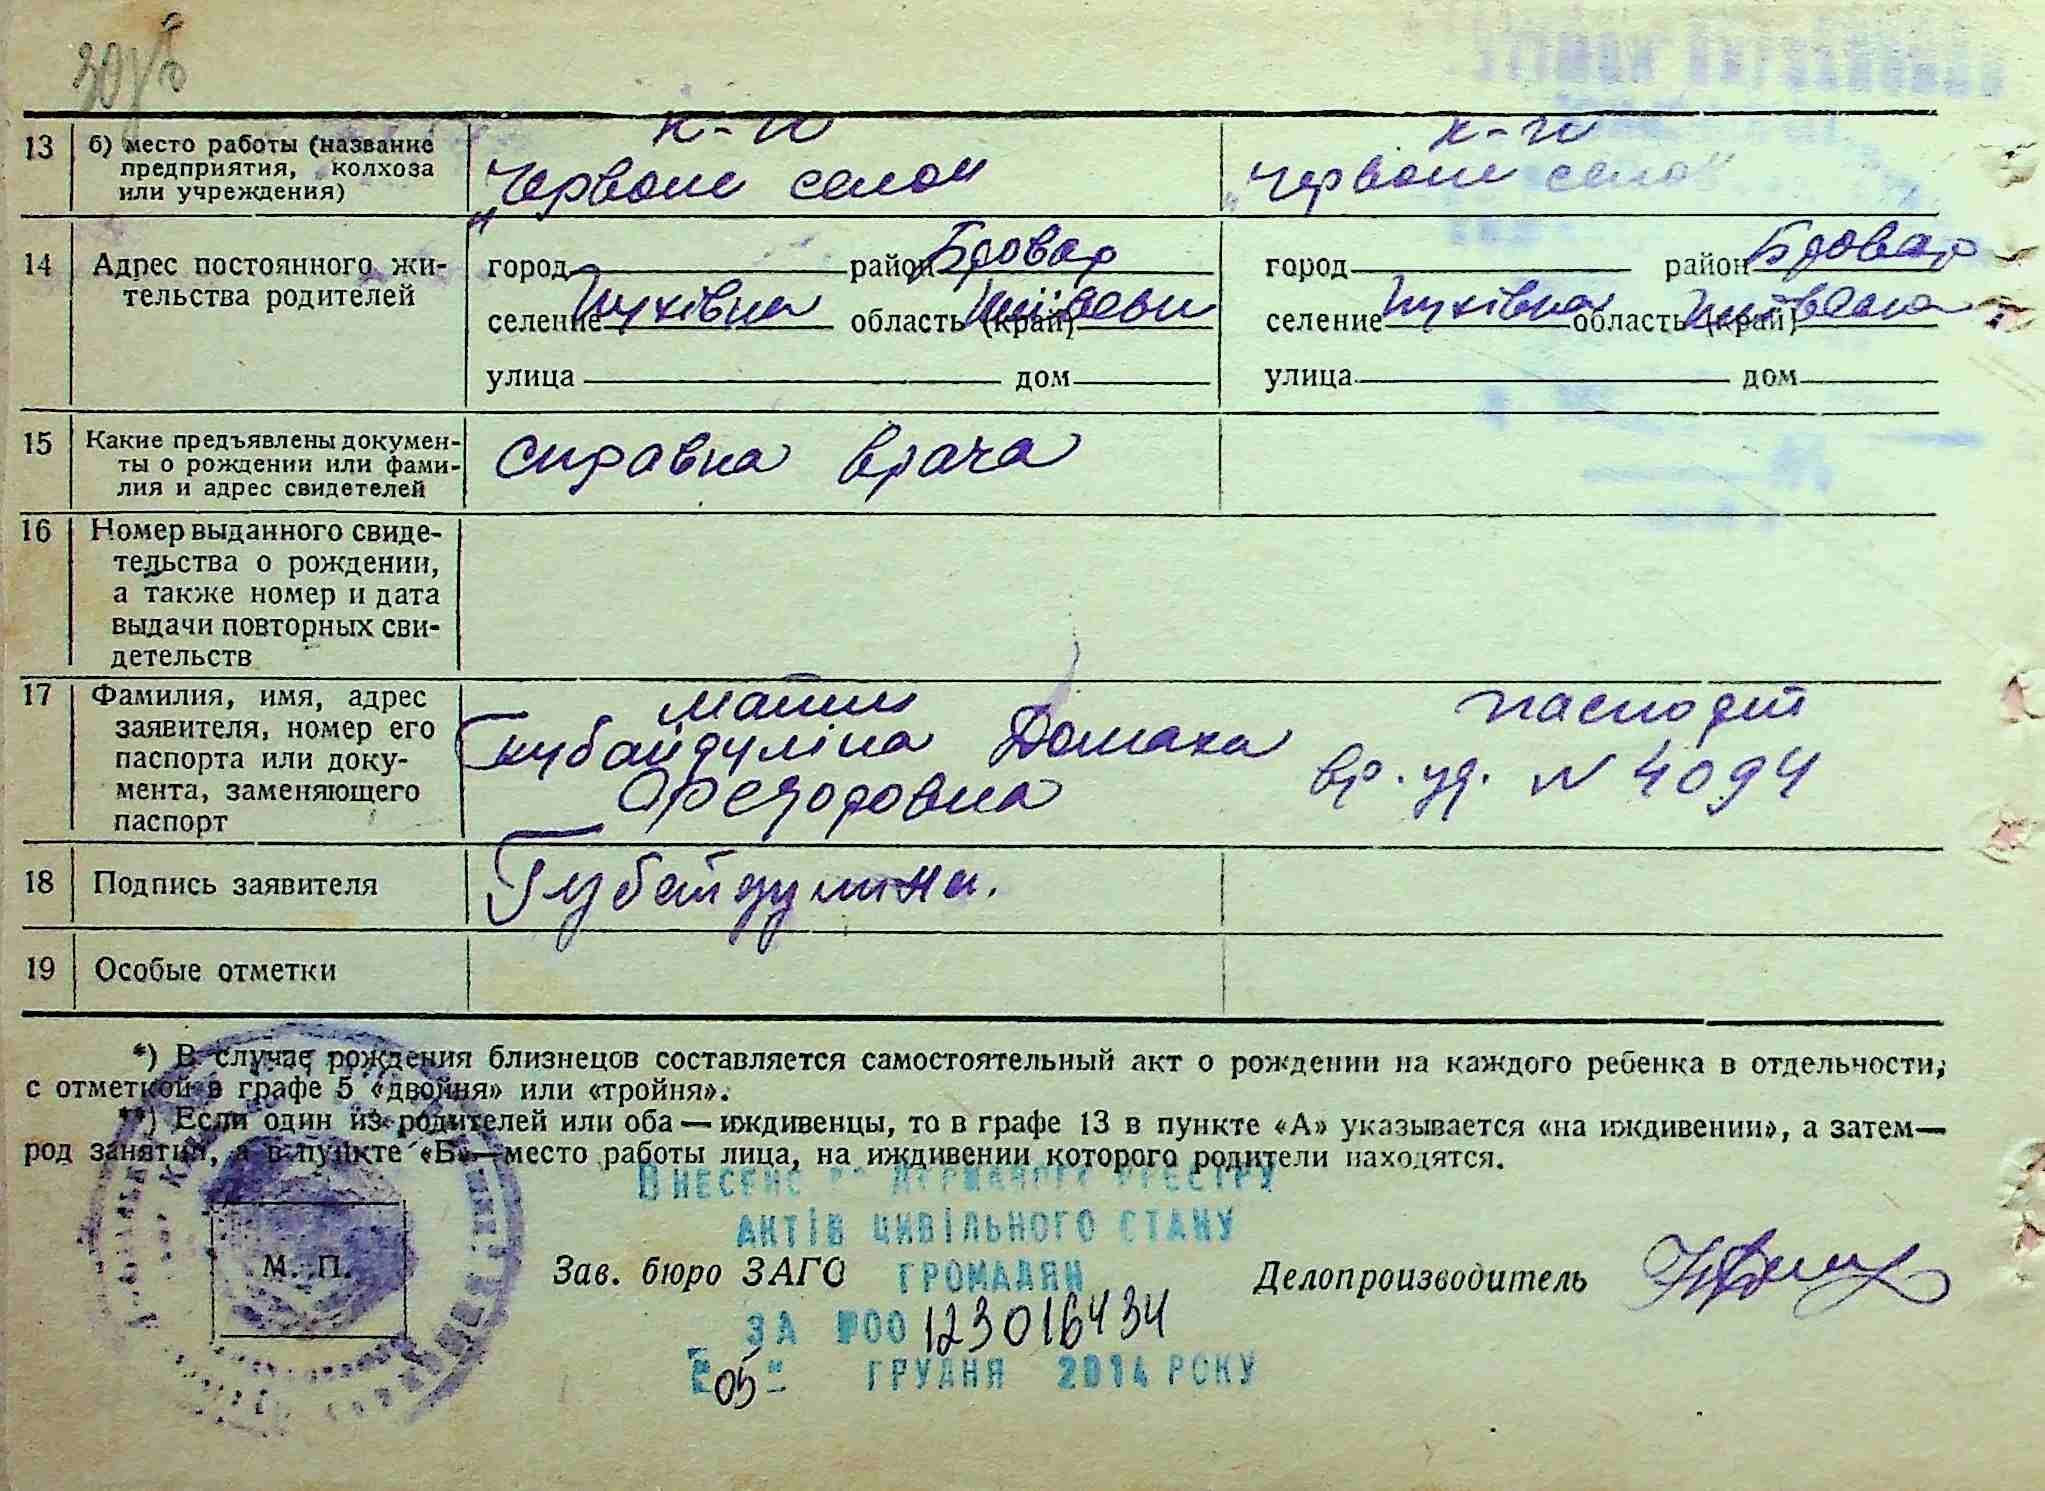 13 б) место работы (название
предприятия, колхоза
или учреждения)
к-п
к-п
„Червоне село"
„Червоне село"
14 Адрес постоянного жи-
тельства родителей
город район Бровар
селение Пухівка область (край)
улица дом
город район Бровар
селение Пухівка область (край) Київська
улица дом
15 Какие предъявлены докумен-
ты о рождении или фами-
лия и адрес свидетелей
справка врача
16 Номер выданного свиде-
тельства о рождении,
а также номер и дата
выдачи повторных сви-
детельств
17 Фамилия, имя, адрес
заявителя, номер его
паспорта или доку-
мента, заменяющего
паспорт
мати
Губайдуліна Домаха
Федоровна
паспорт
вр. уд. N 4094
18 Подпись заявителя
Губайдулина.
19 Особые отметки
*) В случае рождения близнецов составляется самостоятельный акт о рождении на каждого ребенка в отдельности,
с отметкой в графе 5 «двойня» или «тройня».
**) Если один из родителей или оба — иждивенцы, то в графе 13 в пункте «А» указывается «на иждивении», а затем—
род занятий, а в пункте «Б»—место работы лица, на иждивении которого родители находятся.
ВНЕСЕНО ДО ДЕРЖАВНОГО РЕЄСТРУ
АКТІВ ЦИВІЛЬНОГО СТАНУ
ГРОМАДЯН
М. П.
Зав. бюро ЗАГС
Делопроизводитель
ЗА №00123016434
"05" ГРУДНЯ 2014 РОКУ